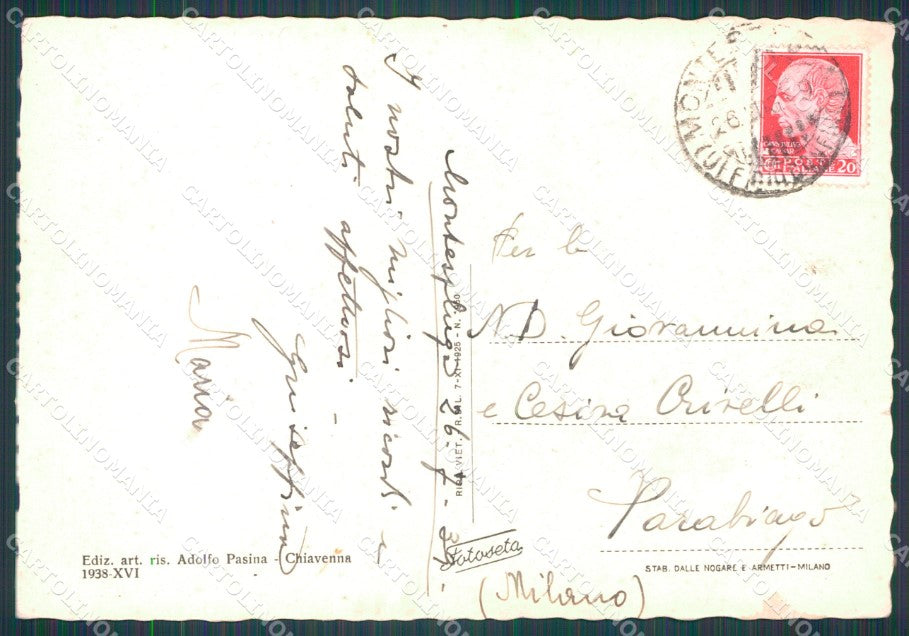 Montespluga 26-7-39-
I nostri migliori ricordi e
saluti affettuosi -
Giuseppina
Maria
Per le
N.D. Giovannina
e Cesira Crivelli
Parabiago
(Milano)
RIP. VIET. 7-XI-1925 - N.
Fotoseta
STAB. DALLE NOGARE E ARMETTI-MILANO
Ediz. art. ris. Adolfo Pasina - Chiavenna
1938-XVI
POSTE
20
CARTOLINOMANIA